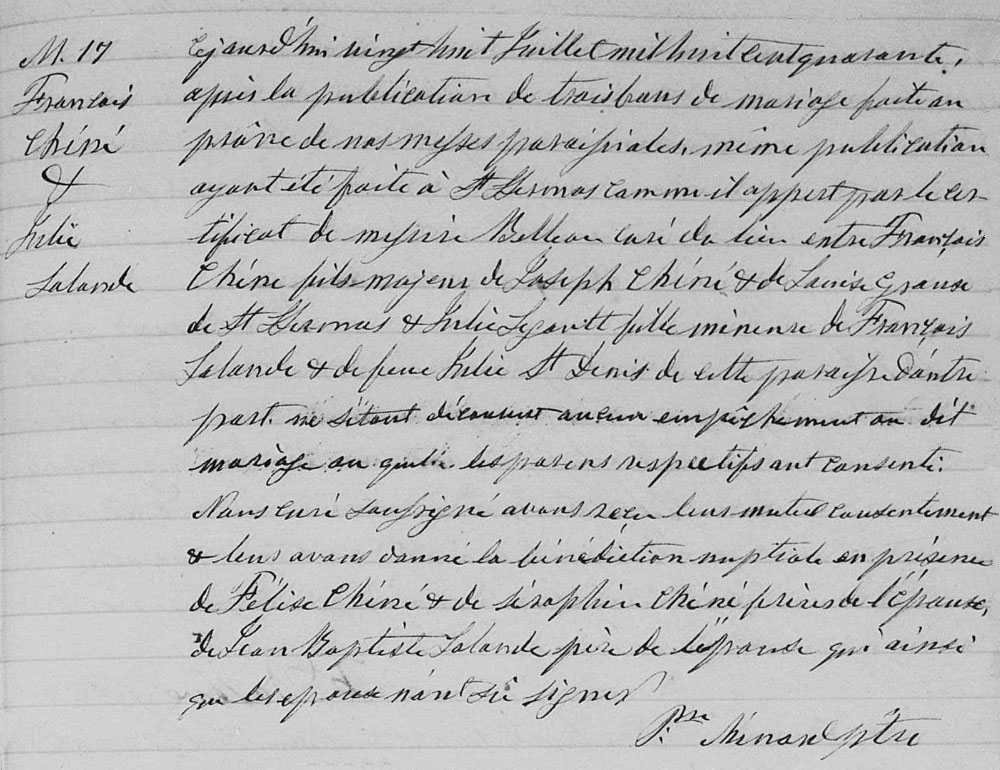 M. 17
François
Chéné
&
Julie
Lalande
Cejourd'hui vingt huit Juillet mil huit cent quarante,
après la publication de trois bans de mariage faite au
prône de nos messes paroissiales, même publication
ayant été faite à St Hermas comme il appert par le cer-
tificat de messire Belleau curé du lieu entre François
Chéné fils majeur de Joseph Chéné & de Louise
de St Hermas & Julie fille mineure de François
Lalande & de feue Julie St Denis de cette paroisse d'autre
part. ne s'étant découvert aucun empêchement au dit
mariage au les parens respectifs ont consenti.
Nous curé soussigné avons reçu leur mutuel consentement
& leur avons donné la bénédiction nuptiale en présence
de Félise Chéné & de séraphin Chéné frères de l'épouse,
de Jean Baptiste Lalande père de l'épouse qui ainsi
que les epoux n'ont su signer
Ptre